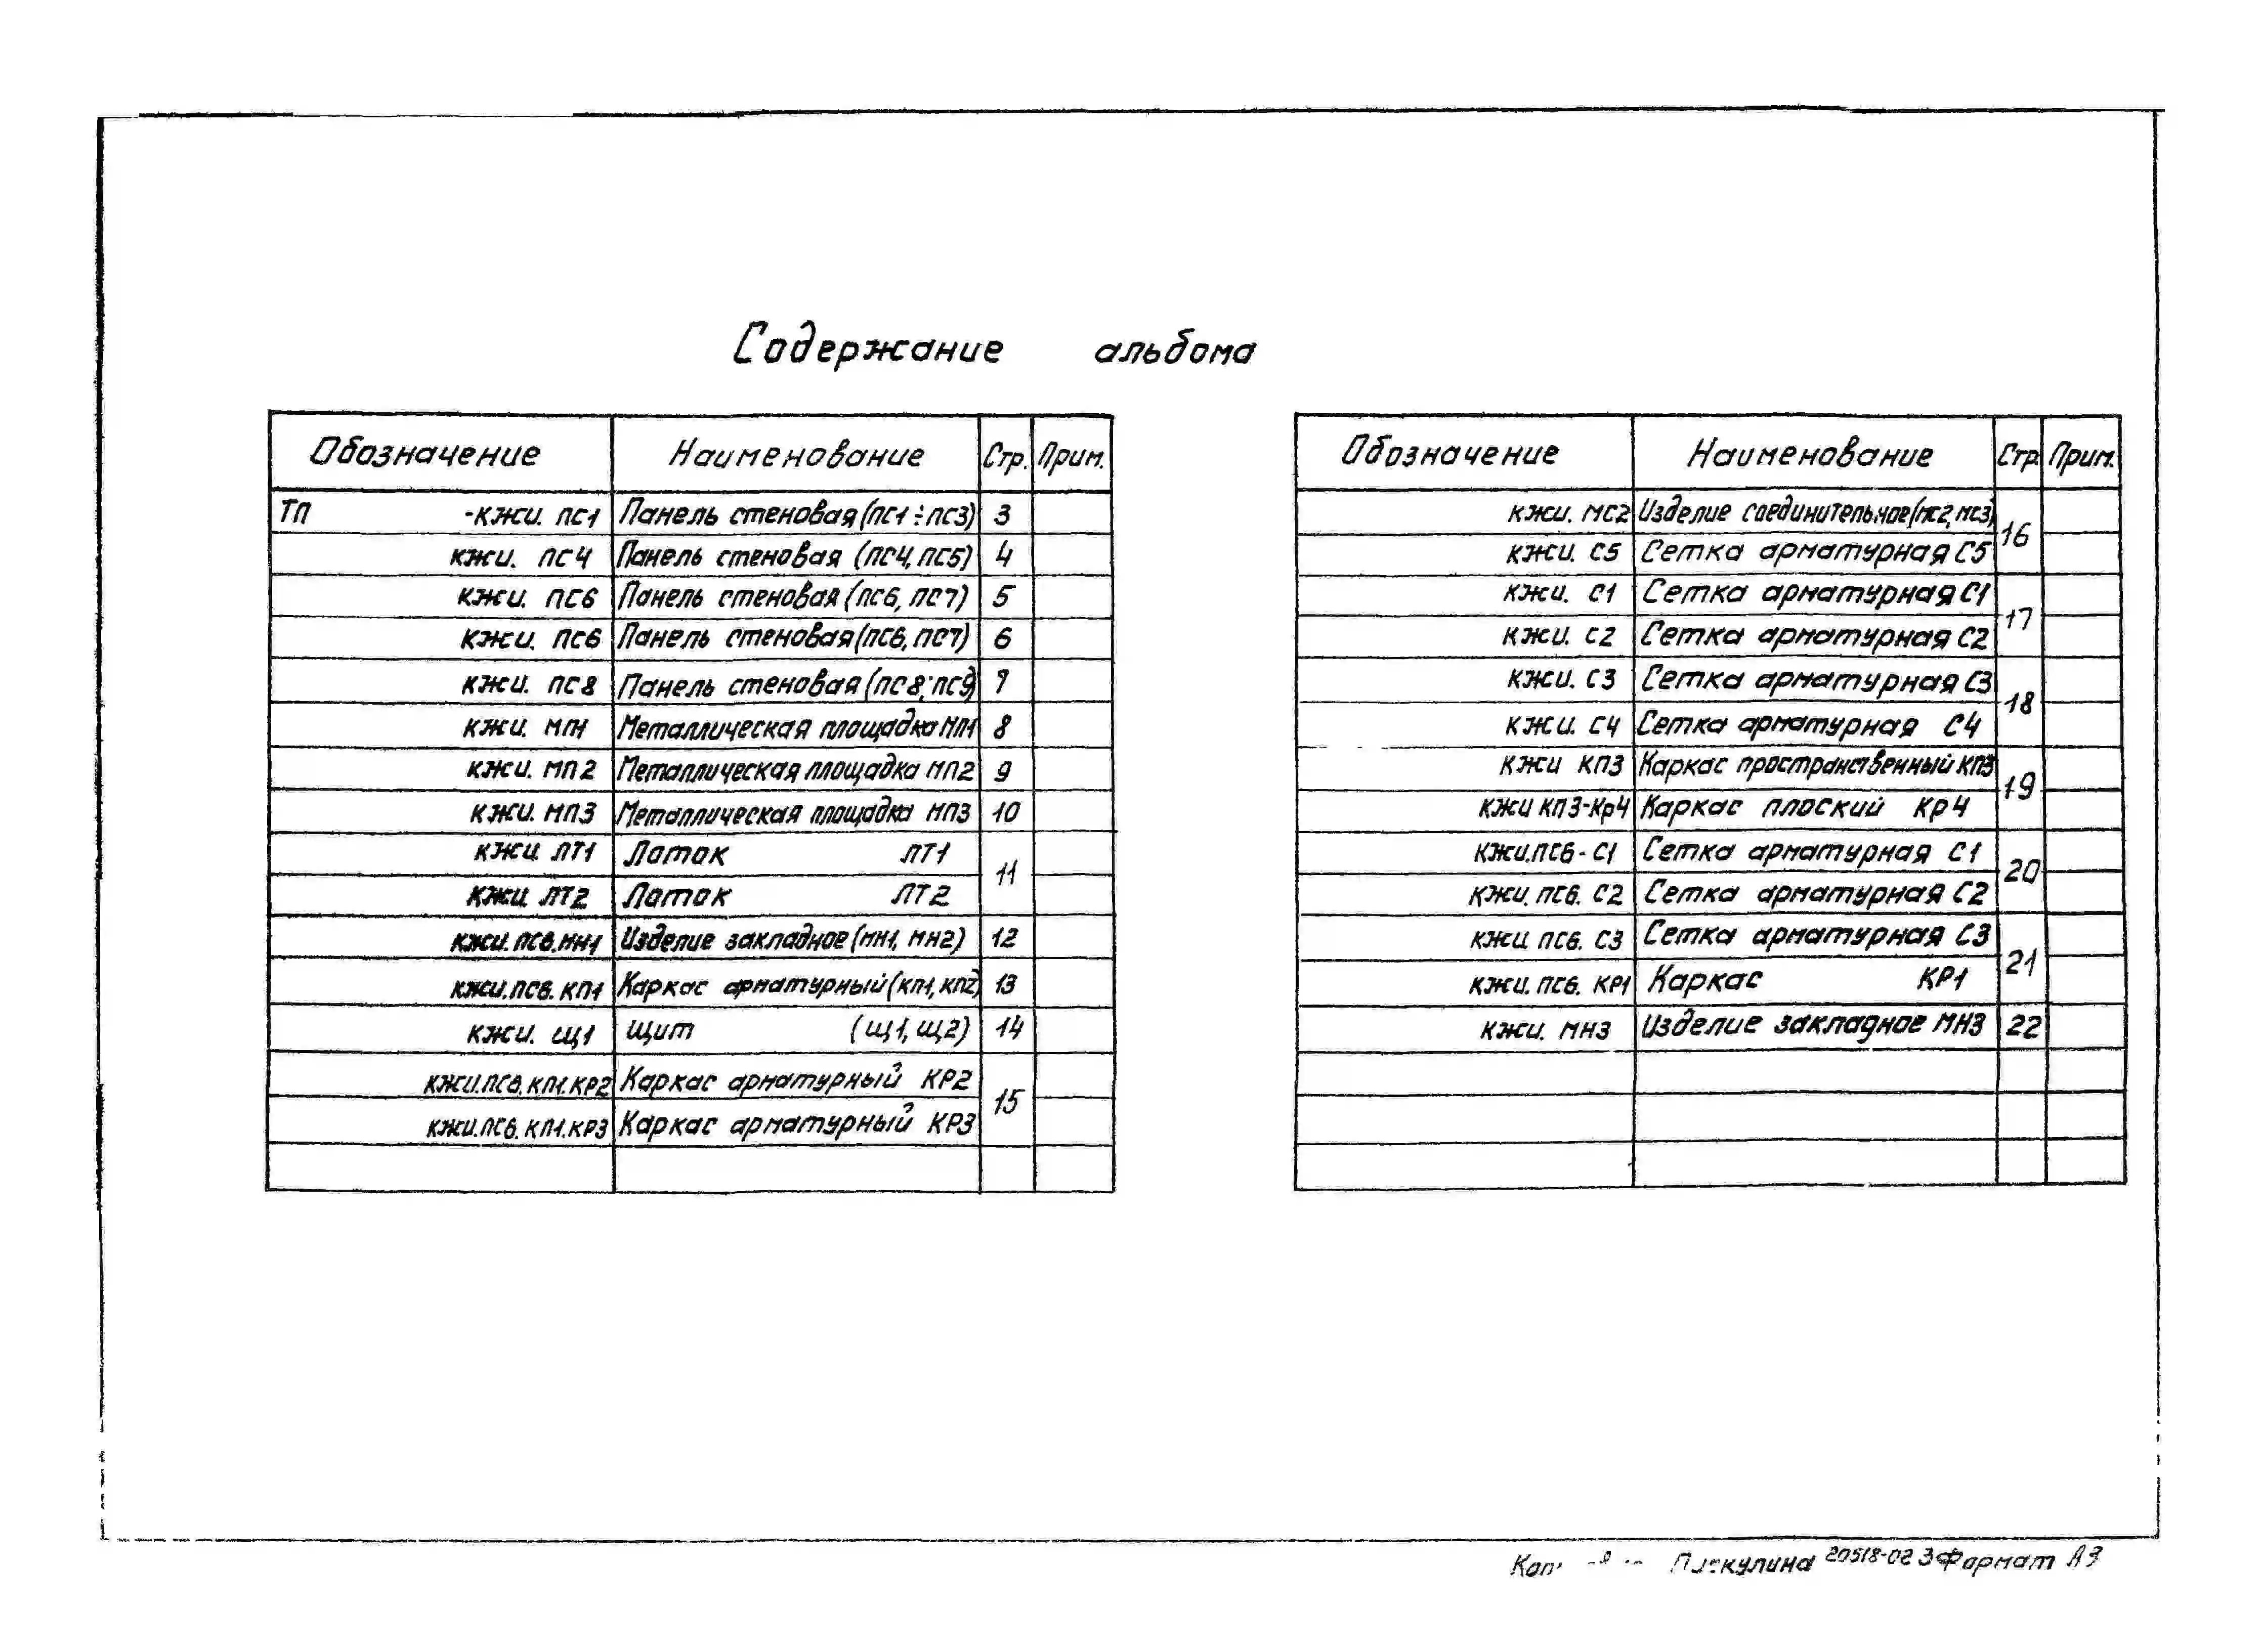 Содержание альбома
Обозначение Наименование Стр. Прим.
ТП -КЖИ. ПС1 Панель стеновая (ПС1÷ПС3) 3
КЖИ. ПС4 Панель стеновая (ПС4, ПС5) 4
КЖИ. ПС6 Панель стеновая (ПС6, ПС7) 5
КЖИ. ПС6 Панель стеновая (ПС6, ПС7) 6
КЖИ. ПС8 Панель стеновая (ПС8; ПС9) 7
КЖИ. МП1 Металлическая площадка МП1 8
КЖИ. МП2 Металлическая площадка МП2 9
КЖИ. МП3 Металлическая площадка МП3 10
КЖИ ЛТ1 Лоток ЛТ1 11
КЖИ ЛТ2 Лоток ЛТ2
КЖИ.ПС6.МН1 Изделие закладное (МН1, МН2) 12
КЖИ.ПС6.КП1 Каркас арматурный (КП1, КП2) 13
КЖИ. Щ1 Щит (Щ1, Щ2) 14
КЖИ.ПС6.КП1.КР2 Каркас арматурный КР2 15
КЖИ.ПС6.КП1.КР3 Каркас арматурный КР3
Обозначение Наименование Стр Прим.
КЖИ. МС2 Изделие соединительное (МС2, МС3) 16
КЖИ. С5 Сетка арматурная С5
КЖИ. С1 Сетка арматурная С1 17
КЖИ. С2 Сетка арматурная С2
КЖИ. С3 Сетка арматурная С3 18
КЖИ. С4 Сетка арматурная С4
КЖИ КП3 Каркас пространственный КП3 19
КЖИ КП3-Кр4 Каркас плоский КР4
КЖИ.ПС6-С1 Сетка арматурная С1 20
КЖИ. ПС6. С2 Сетка арматурная С2
КЖИ ПС6. С3 Сетка арматурная С3 21
КЖИ. ПС6. КР1 Каркас КР1
КЖИ. МН3 Изделие закладное МН3 22
20518-02 3 Формат А3